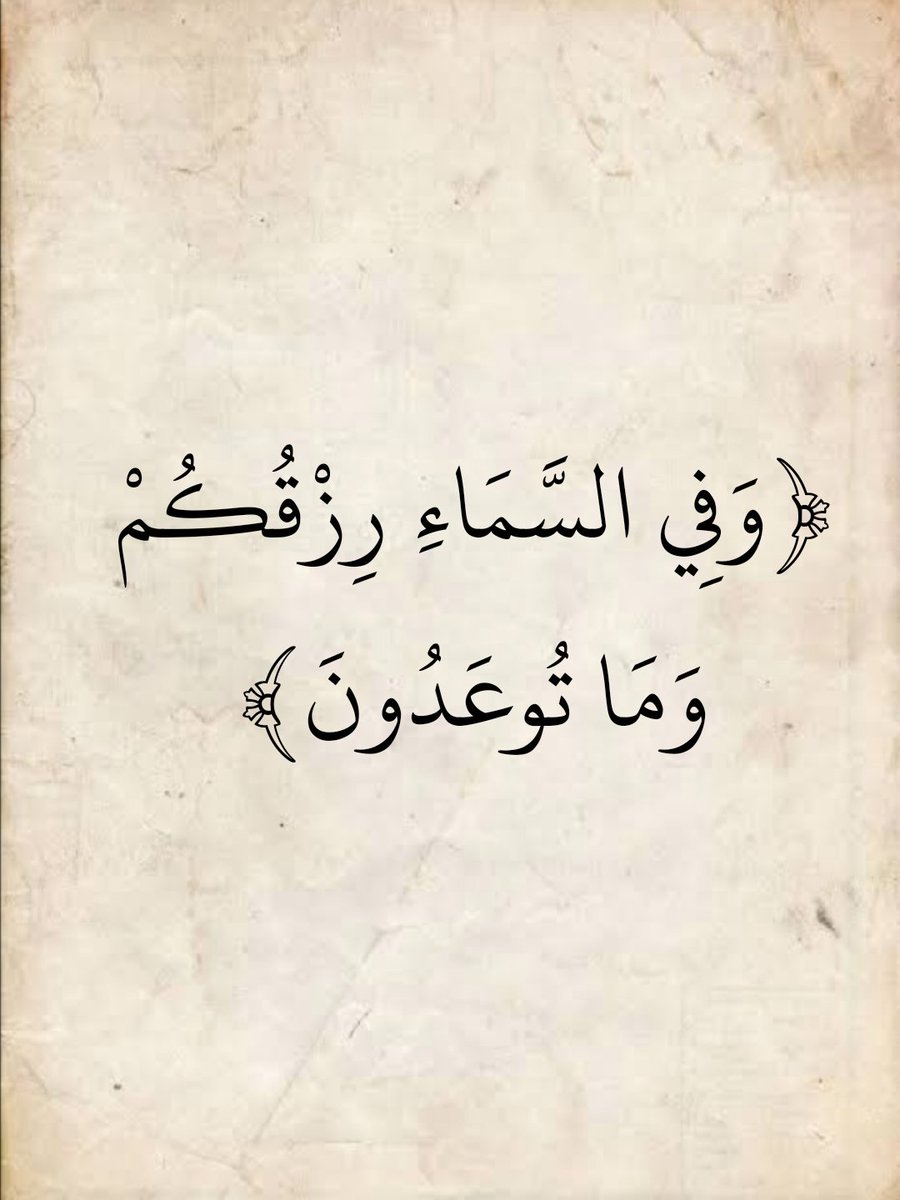 ﴿وَفِي السَّمَاءِ رِزْقُكُمْ
وَمَا تُوعَدُونَ﴾